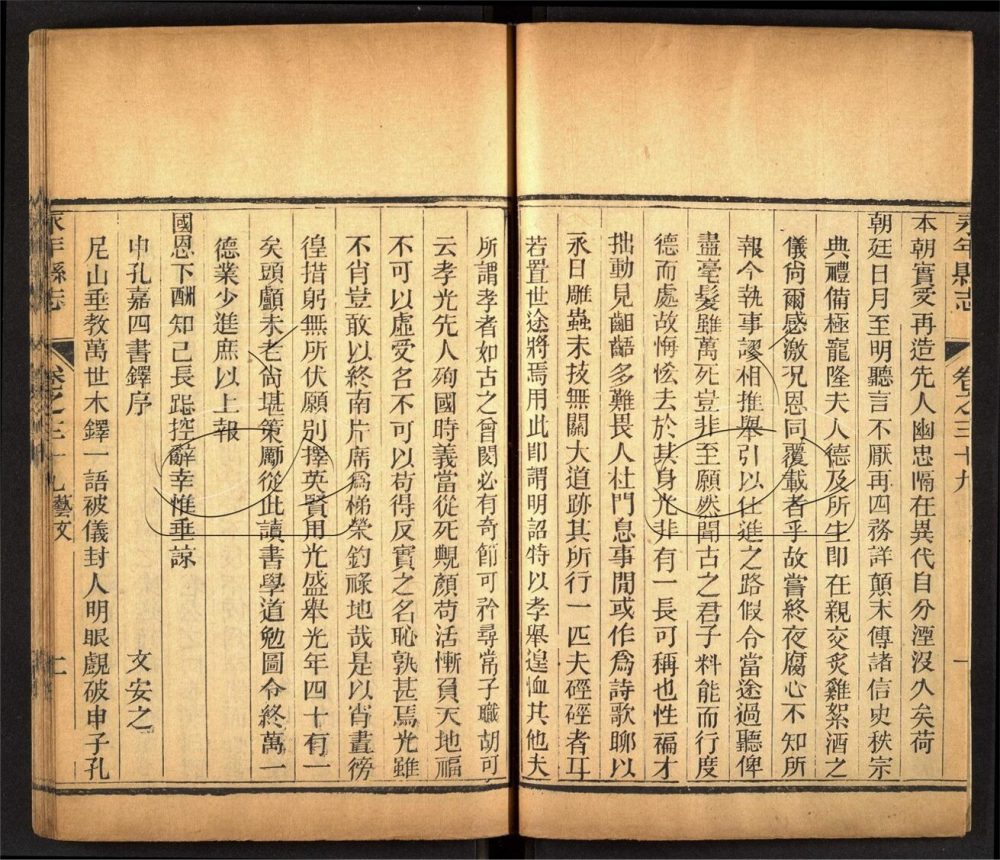 永年縣志
卷之三十九
本朝實受再造先人幽忠隔在異代自分湮沒久矣荷
朝廷日月至明聽言不厭再四務詳顛末傳諸信史秩宗
典禮備極寵隆夫人德及所生卽在親交炙雞絮酒之
儀尙爾感激況恩同覆載者乎故嘗終夜腐心不知所
報今執事謬相推舉引以仕進之路假令當途過聽俾
盡毫髮雖萬死豈非至願然聞古之君子料能而行度
德而處故悔恡去於其身光非有一長可稱也性福才
拙動見齟齬多難畏人杜門息事閒或作爲詩歌聊以
永日雕蟲末技無關大道跡其所行一匹夫硜硜者耳
若置世途將焉用此卽謂明詔特以孝舉遑恤其他夫
所謂孝者如古之曾閔必有奇節可矜尋常子職胡可
云孝光先人殉國時義當從死覥顏苟活慚負天地福
不可以虛受名不可以苟得反實之名恥孰甚焉光雖
不肖豈敢以終南片席爲梯榮釣祿地哉是以宵晝徬
徨措躬無所伏願別擇英賢用光盛舉光年四十有一
矣頭顱未老尙堪策勵從此讀書學道勉圖令終萬一
德業少進庶以上報
國恩下酬知己長跽控辭幸惟垂諒
申孔嘉四書鐸序
文安之
尼山垂教萬世木鐸一語被儀封人明眼覷破申子孔
永年縣志
卷之三十九
藝文
十一